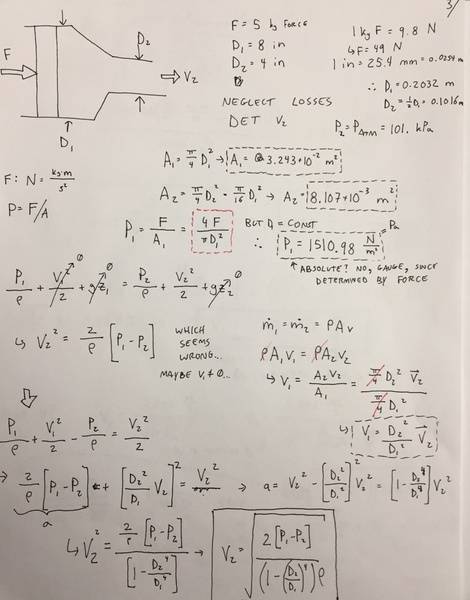 3/
F = 5 kg FORCE
D₁ = 8 in
D₂ = 4 in
1 kg F = 9.8 N
↳ F = 49 N
1 in = 25.4 mm = 0.0254 m
∴ D₁ = 0.2032 m
D₂ = ½D₁ = 0.1016 m
F
D₂
V₂
D₁
NEGLECT LOSSES
DET V₂
P₂ = P_ATM = 101. kPa
A₁ = π/4 D₁² → A₁ = 3.243×10⁻² m²
F: N = kg·m/s²
A₂ = π/4 D₂² = π/16 D₁² → A₂ = 8.107×10⁻³ m²
P = F/A
P₁ = F/A₁ = 4F/πD₁²
BUT D₁ = CONST
∴ P₁ = 1510.98 N/m² = Pa
↑ ABSOLUTE? NO, GAUGE, SINCE
DETERMINED BY FORCE
P₁/ρ + V₁²/2 + gz₁ = P₂/ρ + V₂²/2 + gz₂
↳ V₂² = 2/ρ [P₁ - P₂]
WHICH
SEEMS
WRONG...
MAYBE V₁ ≠ 0...
ṁ₁ = ṁ₂ = ρAv
ρA₁V₁ = ρA₂V₂
↳ V₁ = A₂V₂/A₁ = π/4 D₂² V₂ / π/4 D₁²
↳ V₁ = D₂²/D₁² V₂
P₁/ρ + V₁²/2 - P₂/ρ = V₂²/2
→ 2/ρ [P₁ - P₂] + [D₂²/D₁ V₂]² = V₂² → a = V₂² - [D₂²/D₁²]² V₂² = [1 - D₂⁴/D₁⁴] V₂²
a
↳ V₂² = 2/ρ [P₁ - P₂] / [1 - D₂⁴/D₁⁴] → V₂ = √(2[P₁ - P₂] / (1 - (D₂/D₁)⁴)ρ)